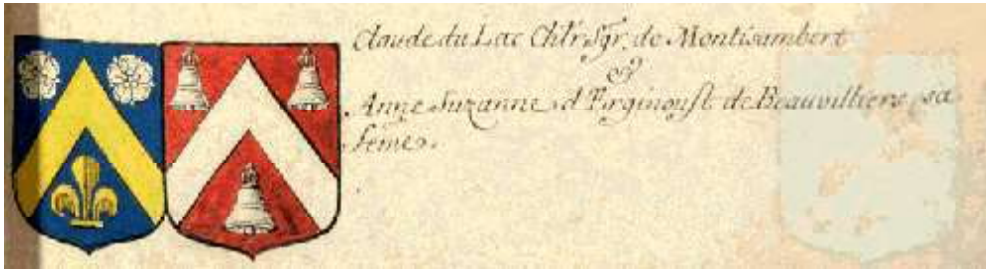 Claude du Lac Chlr. Sgr. de Montisambert
&
Anne Suzanne d'Erginoust de Beauvilliers sa
feme.